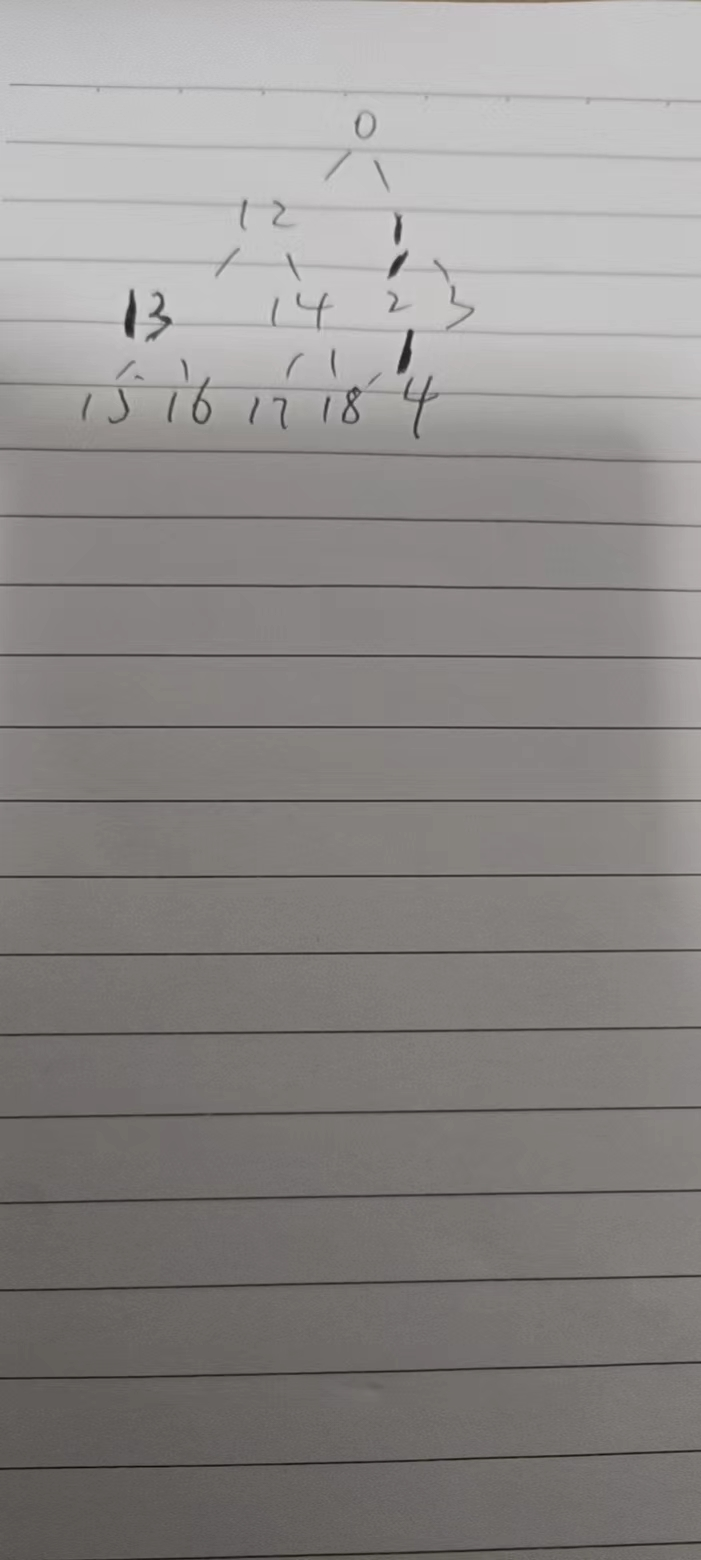 0
12 1
13 14 2 3
15 16 17 18 4